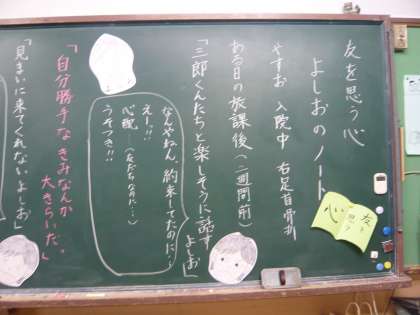 友を思う心
よしおのノート
やすお 入院中 右足首骨折
ある日の放課後(二週間前)
「三郎くんたちと楽しそうに話すよしお」
なんやねん、約束してたのに…
えー!!
心配 (友だちなのに…)
うそつき!!
「自分勝手なきみなんか
大きらいだ。」
「見まいに来てくれないよしお」
友を
思う
心